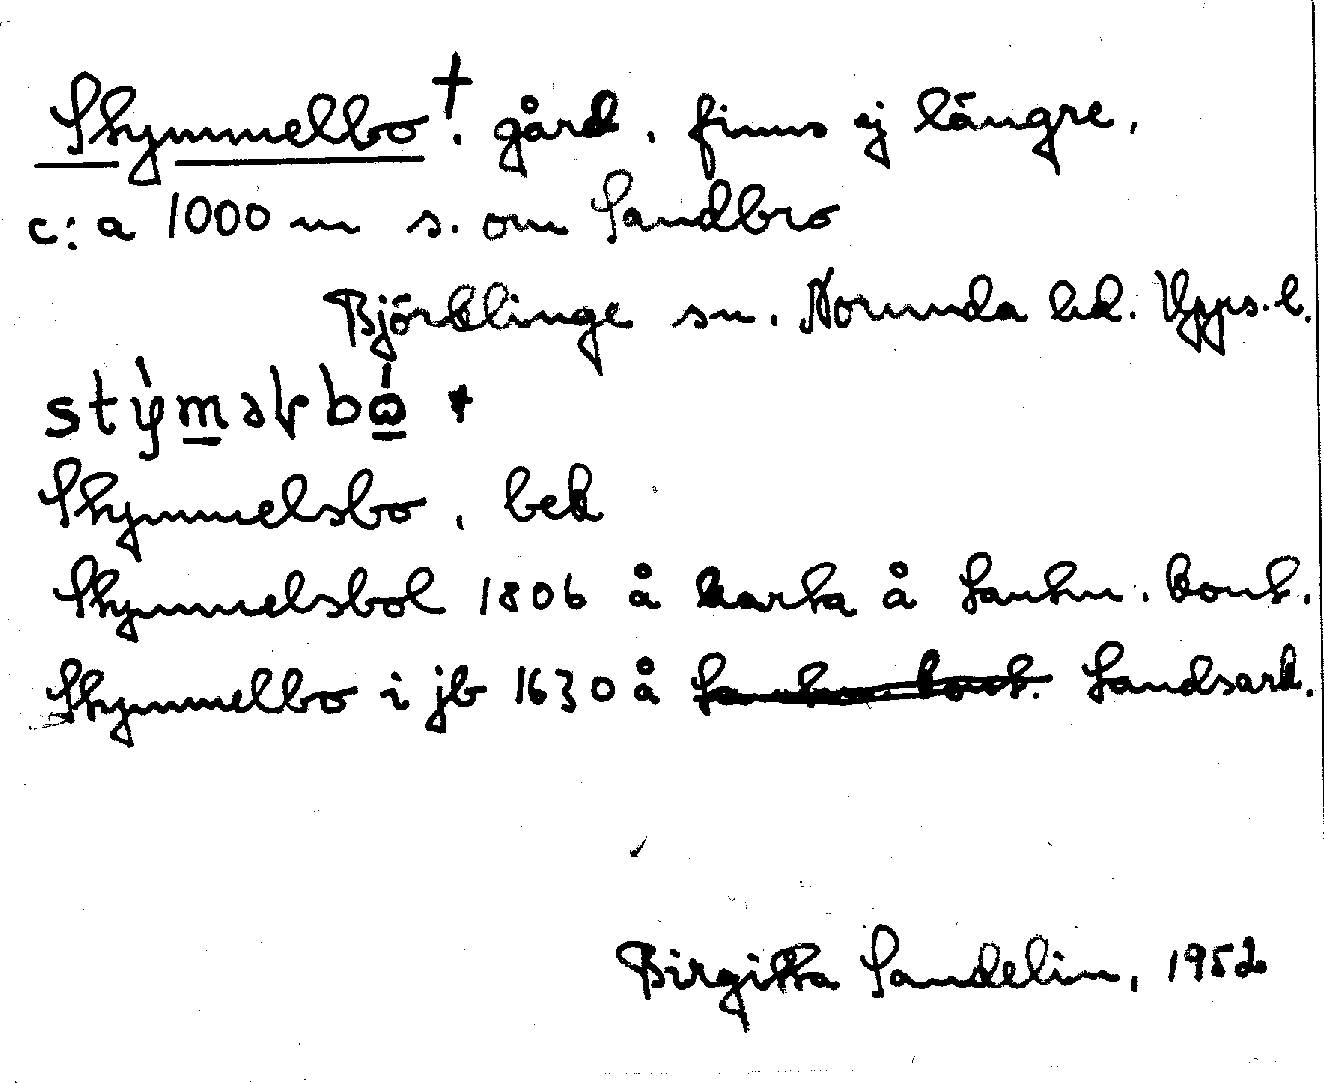 Stymmelbo†. gård, finns ej längre,
c:a 1000 m s. om Sandbro
Björklinge sn. Norunda hd. Upps. l.
stỳm̲əɽbώ̲ +
Stymmelsbo, bek
Stymmelsbol 1806 å karta å Lantm. kont.
Stymmelbo i jb 1630 å ~~Lantm. kont.~~ Landsark.
Birgitta Sandelin, 1952